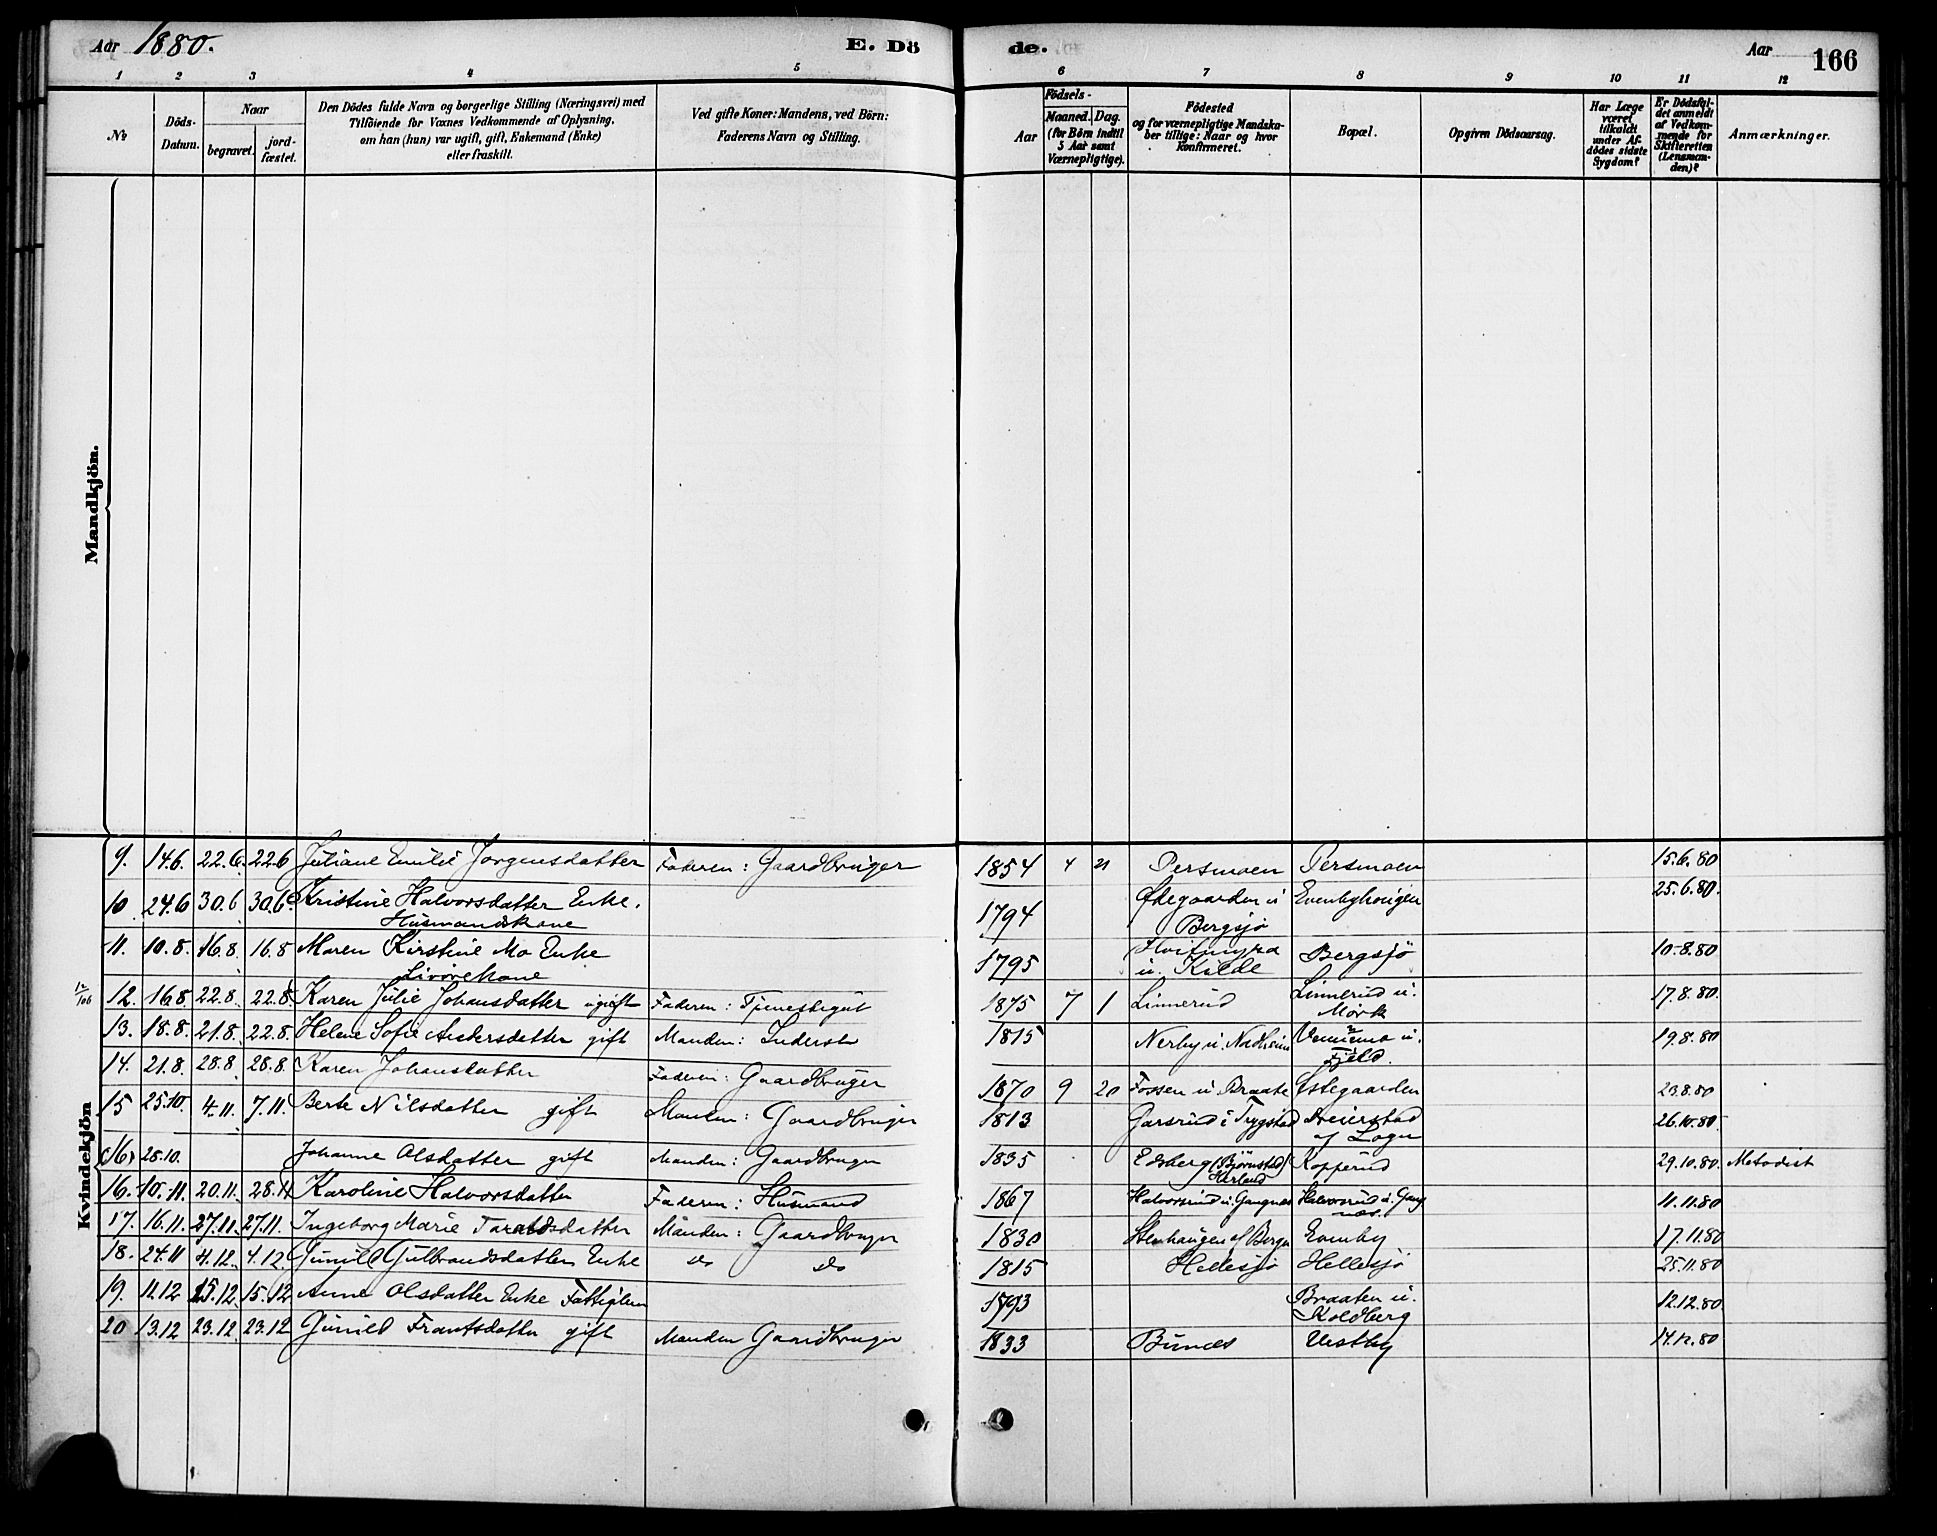 Aar 1880.
E. Dö
de.
Aar
166
1 2 3 4 5 6 7 8 9 10 11 12
No
Döds-
Datum.
Naar
begravet.
jord-
fæstet.
Den Dödes fulde Navn og borgerlige Stilling (Næringsvei) med
Tilföiende for Voxnes Vedkommende af Oplysning,
om han (hun) var ugift, gift, Enkemand (Enke)
eller fraskilt.
Ved gifte Koner: Mandens, ved Börn:
Faderens Navn og Stilling.
Aar
Födsels-
Maaned. Dag.
(for Börn indtil
5 Aar samt
Værnepligtige).
Födested
og for værnepligtige Mandska-
ber tillige: Naar og hvor
Konfirmeret.
Bopæl.
Opgiven Dödsaarsag.
Har Læge
været
tilkaldt
under Af-
dödes sidste
Sygdom?
Er Dödsfal-
det anmeldt
af Vedkom-
mende for
Skifteretten
(Lensman-
den)?
Anmærkninger.
Mandkjön.
Kvindekjön
9. 14.6. 22.6. 22.6 Juliane Emilie Jorgensdatter Faderen: Gaardbruger 1854 4 21 Persmoen Persmoen 15.6.80
10 24.6 30.6 30.6. Kristine Halvorsdatter Enke. 1794 Ødegaarden u Evenbyhougen 25.6.80.
Husmandskone Bergsjø
11. 10.8. 16.8. 16.8 Maren Kirstine Mo Enke 1795 Hvitmyra Bergsjö 10.8.80
Livörekone u. Kilde
12. 16.8. 22.8. 22.8. Karen Julie Johansdatter ugift Faderen: Tjenestegut 1875 7 1 Linnerud Linnerud u. 17.8.80.
Mørk
13. 18.8. 21.8. 22.8. Helene Sofie Andersdatter gift Manden: Inderst 1815 Nerby u. 19.8.80
Fjeld.
14. 21.8. 28.8 28.8. Karen Johansdatter Faderen: Gaardbruger 1870 9 20 Fossen u Braate Østegaarden 23.8.80
15 25.10. 4.11. 7.11. Berte Nilsdatter gift Manden: Gaardbruger 1813 Garsrud i Trygstad 26.10.80
(16) 28.10. Johanne Olsdatter gift Manden: Gaardbruger 1835 Edsberg (Björnstad Kopperud 29.10.80. Metodist
Herland
16. 10.11. 20.11. 28.11 Karoline Halvorsdatter Faderen: Husmand 1867 Halvorsrud u. Gangnæs Halvorsrud u. Gang 11.11.80
næs.
17. 16.11. 27.11. 27.11. Ingeborg Marie Taraldsdatter Manden: Gaardbruger 1830 Stenhaugen af Berger Evenby 17.11.80
18. 24.11 4.12. 4.12. Gunild Gulbrandsdatter Enke do do 1815 Hellesjø Hellesjø 25.11.80
19. 11.12 15.12 15.12 Anne Olsdatter Enke Fattiglem 1793 Braaten u. 12.12.80.
Koldberg
20 13.12 23.12. 23.12 Gunild Frantsdatter gift Manden Gaardbruger 1833 Bunæs Vestby 14.12.80